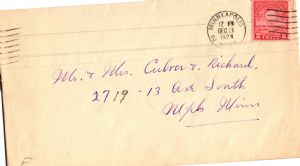 MINNEAPOLIS
2
12 PM
DEC 21
1929
2 CENTS 2
Mr. & Mrs. Culver & Richard,
2719 - 13 Ave South
Mpls Minn